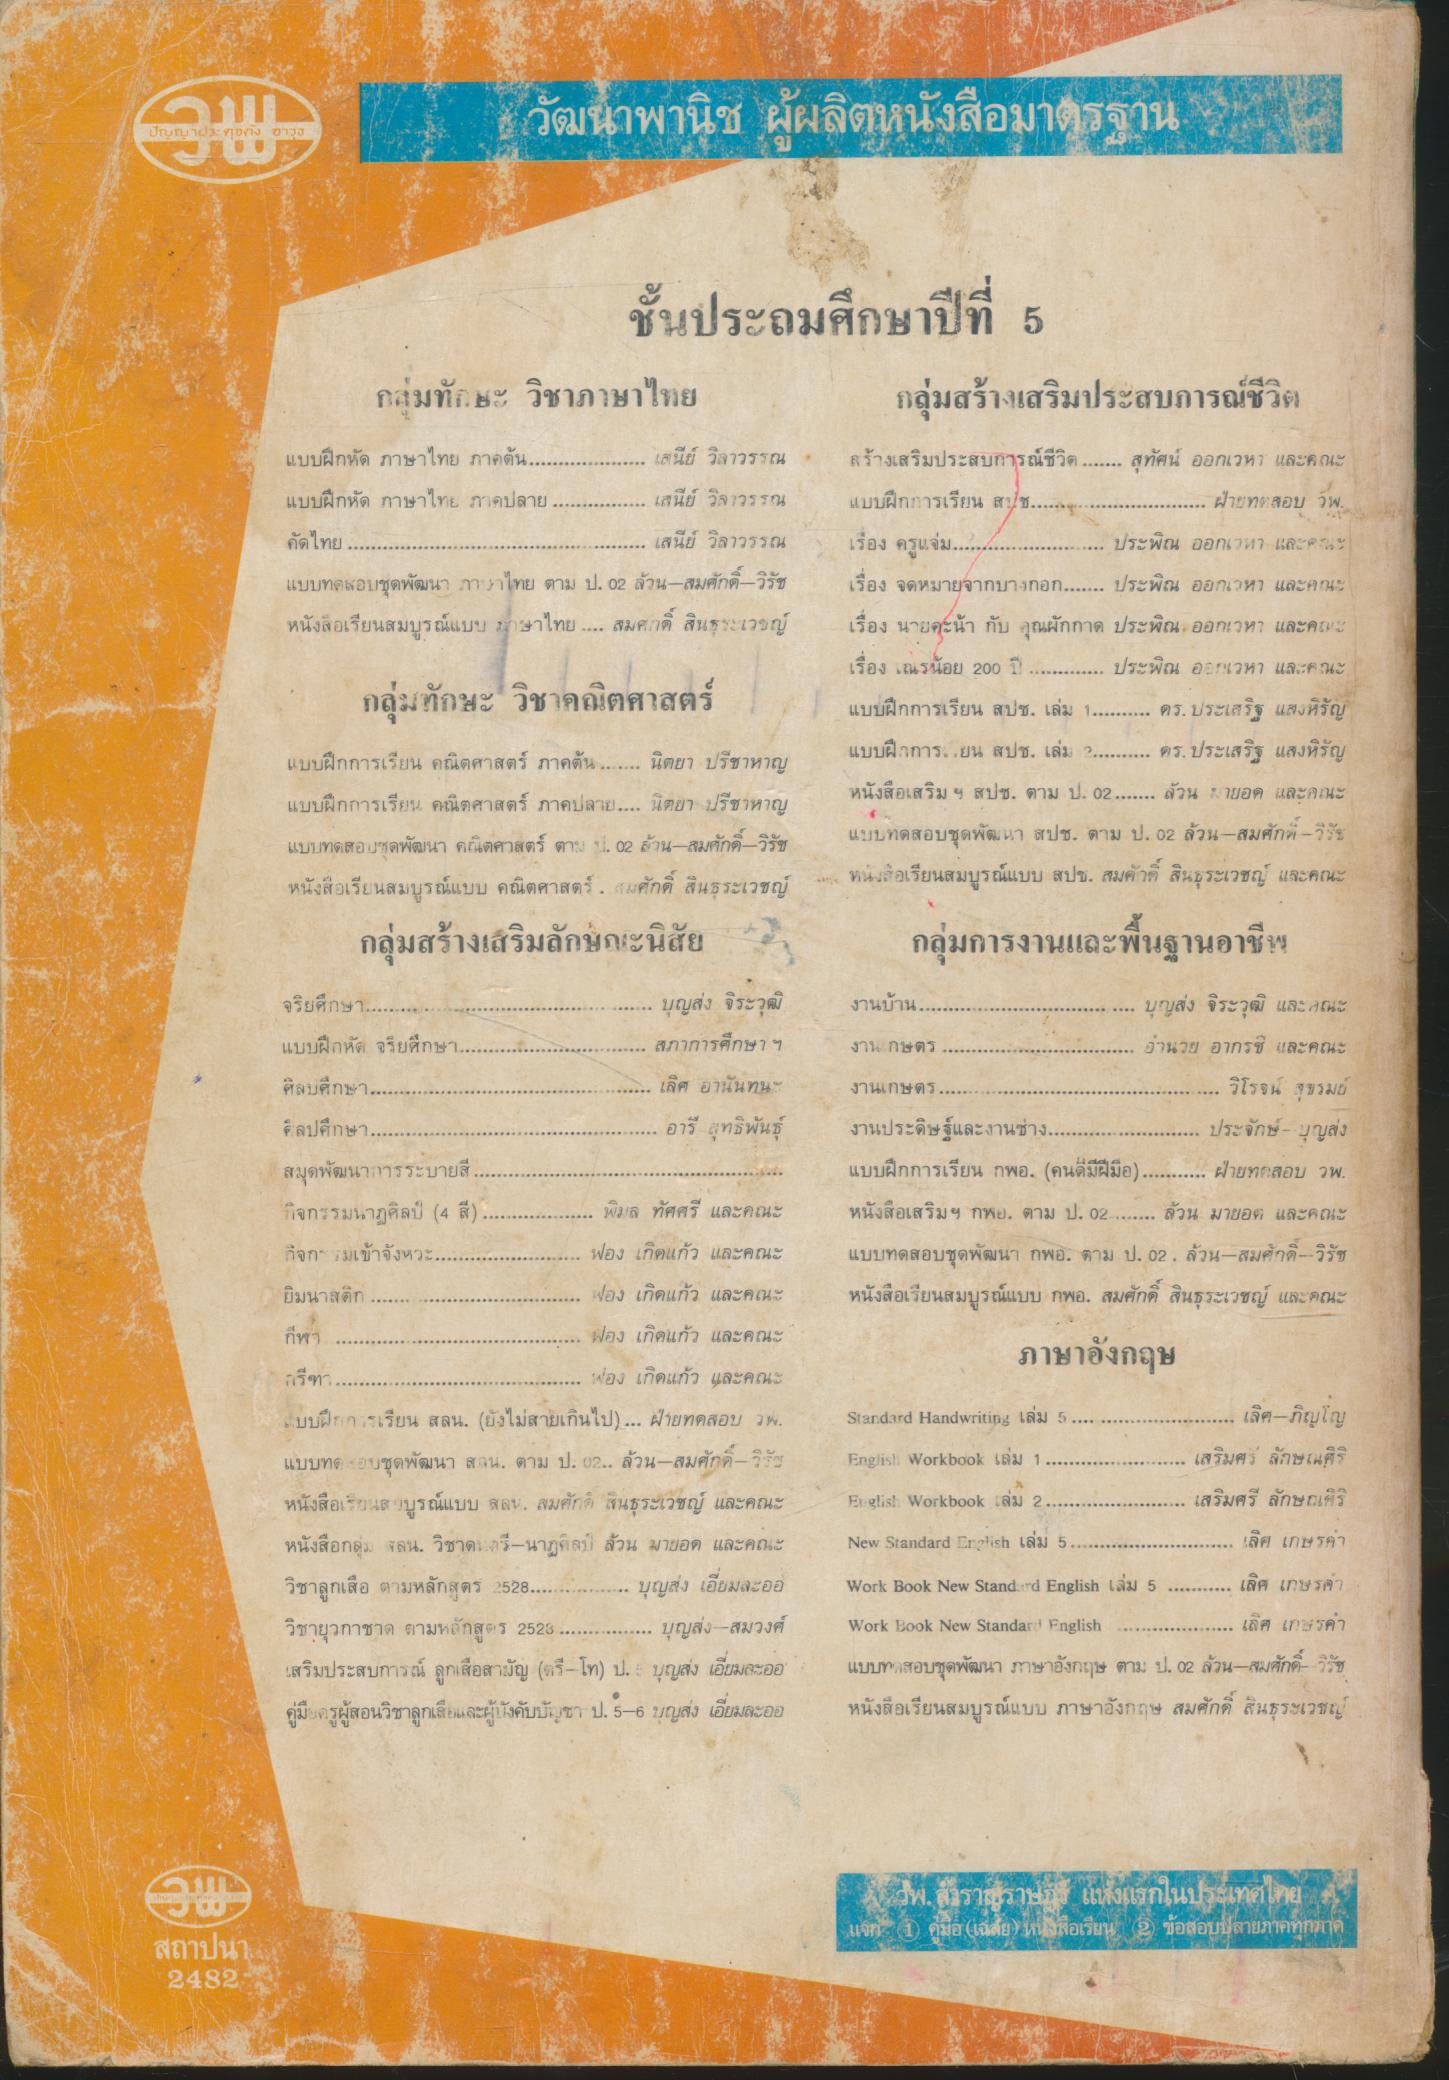 วพ
วัฒนาพานิช ผู้ผลิตหนังสือมาตรฐาน
ชั้นประถมศึกษาปีที่ 5
กลุ่มทักษะ วิชาภาษาไทย
แบบฝึกหัด ภาษาไทย ภาคต้น..................... เสนีย์ วิลาวรรณ
แบบฝึกหัด ภาษาไทย ภาคปลาย................. เสนีย์ วิลาวรรณ
คัดไทย.................................................... เสนีย์ วิลาวรรณ
แบบทดสอบชุดพัฒนา ภาษาไทย ตาม ป. 02 ล้วน—สมศักดิ์—วิรัช
หนังสือเรียนสมบูรณ์แบบ ภาษาไทย.... สมศักดิ์ สินธุระเวชญ์
กลุ่มทักษะ วิชาคณิตศาสตร์
แบบฝึกการเรียน คณิตศาสตร์ ภาคต้น....... นิตยา ปรีชาหาญ
แบบฝึกการเรียน คณิตศาสตร์ ภาคปลาย.... นิตยา ปรีชาหาญ
แบบทดสอบชุดพัฒนา คณิตศาสตร์ ตาม ป. 02 ล้วน—สมศักดิ์—วิรัช
หนังสือเรียนสมบูรณ์แบบ คณิตศาสตร์ . สมศักดิ์ สินธุระเวชญ์
กลุ่มสร้างเสริมลักษณะนิสัย
จริยศึกษา.................................................. บุญส่ง จิระวุฒิ
แบบฝึกหัด จริยศึกษา................................. สภาการศึกษาฯ
ศิลปศึกษา................................................. เลิศ อานันทนะ
ศิลปศึกษา.................................................. อารี สุทธิพันธุ์
สมุดพัฒนาการระบายสี......................................................
กิจกรรมนาฏศิลป์ (4 สี)................... พิมล ทัศศรี และคณะ
กิจกรรมเข้าจังหวะ......................... ฟอง เกิดแก้ว และคณะ
ยิมนาสติก.................................... ฟอง เกิดแก้ว และคณะ
กีฬา .......................................... ฟอง เกิดแก้ว และคณะ
กรีฑา.......................................... ฟอง เกิดแก้ว และคณะ
แบบฝึกการเรียน สลน. (ยังไม่สายเกินไป)... ฝ่ายทดสอบ วพ.
แบบทดสอบชุดพัฒนา สลน. ตาม ป. 02.. ล้วน—สมศักดิ์—วิรัช
หนังสือเรียนสมบูรณ์แบบ สลน. สมศักดิ์ สินธุระเวชญ์ และคณะ
หนังสือกลุ่ม สลน. วิชาดนตรี—นาฏศิลป์ ล้วน มายอด และคณะ
วิชาลูกเสือ ตามหลักสูตร 2528................. บุญส่ง เอี่ยมละออ
วิชายุวกาชาด ตามหลักสูตร 2523................ บุญส่ง—สมวงศ์
เสริมประสบการณ์ ลูกเสือสามัญ (ตรี—โท) ป. 5 บุญส่ง เอี่ยมละออ
คู่มือครูผู้สอนวิชาลูกเสือและผู้บังคับบัญชา ป. 5—6 บุญส่ง เอี่ยมละออ
กลุ่มสร้างเสริมประสบการณ์ชีวิต
สร้างเสริมประสบการณ์ชีวิต....... สุทัศน์ ออกเวหา และคณะ
แบบฝึกการเรียน สปช............................... ฝ่ายทดสอบ วพ.
เรื่อง ครูแจ่ม.......................... ประพิณ ออกเวหา และคณะ
เรื่อง จดหมายจากบางกอก....... ประพิณ ออกเวหา และคณะ
เรื่อง นายคะน้า กับ คุณผักกาด ประพิณ ออกเวหา และคณะ
เรื่อง เณรน้อย 200 ปี............. ประพิณ ออกเวหา และคณะ
แบบฝึกการเรียน สปช. เล่ม 1.......... ดร.ประเสริฐ แสงหิรัญ
แบบฝึกการเรียน สปช. เล่ม 2.......... ดร.ประเสริฐ แสงหิรัญ
หนังสือเสริมฯ สปช. ตาม ป. 02....... ล้วน มายอด และคณะ
แบบทดสอบชุดพัฒนา สปช. ตาม ป. 02 ล้วน—สมศักดิ์—วิรัช
หนังสือเรียนสมบูรณ์แบบ สปช. สมศักดิ์ สินธุระเวชญ์ และคณะ
กลุ่มการงานและพื้นฐานอาชีพ
งานบ้าน...................................... บุญส่ง จิระวุฒิ และคณะ
งานเกษตร ................................. อำนวย อากรชี และคณะ
งานเกษตร................................................. วิโรจน์ สุขรมย์
งานประดิษฐ์และงานช่าง.......................... ประจักษ์—บุญส่ง
แบบฝึกการเรียน กพอ. (คนดีมีฝีมือ)........... ฝ่ายทดสอบ วพ.
หนังสือเสริมฯ กพอ. ตาม ป. 02........ ล้วน มายอด และคณะ
แบบทดสอบชุดพัฒนา กพอ. ตาม ป. 02 . ล้วน—สมศักดิ์—วิรัช
หนังสือเรียนสมบูรณ์แบบ กพอ. สมศักดิ์ สินธุระเวชญ์ และคณะ
ภาษาอังกฤษ
Standard Handwriting เล่ม 5.... ....................... เลิศ—ภิญโญ
English Workbook เล่ม 1........................ เสริมศรี ลักษณศิริ
English Workbook เล่ม 2........................ เสริมศรี ลักษณศิริ
New Standard English เล่ม 5............................ เลิศ เกษรคำ
Work Book New Standard English เล่ม 5 ........... เลิศ เกษรคำ
Work Book New Standard English .................... เลิศ เกษรคำ
แบบทดสอบชุดพัฒนา ภาษาอังกฤษ ตาม ป. 02 ล้วน—สมศักดิ์—วิรัช
หนังสือเรียนสมบูรณ์แบบ ภาษาอังกฤษ สมศักดิ์ สินธุระเวชญ์
วพ. สำราญราษฎร์ แห่งแรกในประเทศไทย
แจก ① คู่มือ (เฉลย) หนังสือเรียน ② ข้อสอบปลายภาคทุกภาค
วพ
สถาปนา
2482